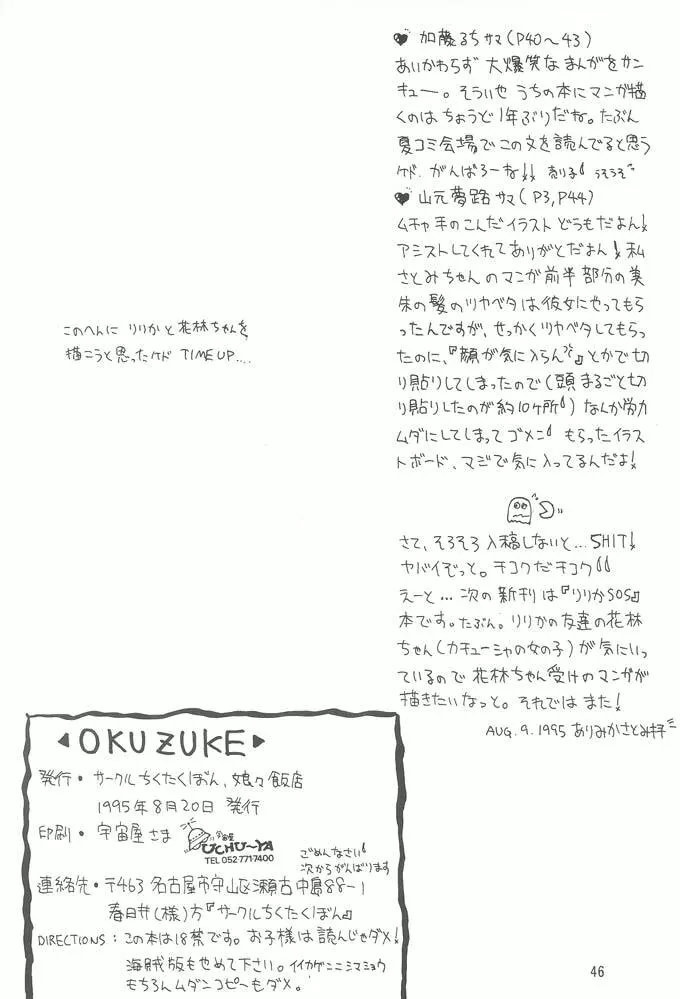 ♥ 加藤るちサマ(P40〜43)
あいかわらず 大爆笑な まんがをサン
キュー。そういや うちの本にマンガ描
くのは ちょうど1年ぶりだね。たぶん
夏コミ会場で この文を読んでると思う
ケド、がんばろーね!! 売り子 うそうそ
♥ 山元夢路サマ(P3,P44)
ムチャ手のこんだイラスト どうもだよん!
アシストしてくれてありがとだよん! 私
さとみちゃんのマンガ前半部分の美
朱の髪のツヤベタは彼女にやってもら
ったんですが、せっかくツヤベタしてもらっ
たのに、『顔が気に入らん』とかで切
り貼りしてしまったので(頭まるごと切
り貼りしたのが約10ヶ所)なんか労力
ムダにしてしまってゴメン もらったイラス
トボード、マジで気に入ってるんだよ!
さて、そろそろ入稿しないと…SHIT!
ヤバイぞっと。チコクだチコク
えーと…次の新刊は『りりかSOS』
本です。たぶん。りりかの友達の花林
ちゃん(カチューシャの女の子)が気にいっ
ているので 花林ちゃん受けのマンガが
描きたいなっと。それでは また!
AUG.9.1995 ありみかさとみ拝
このへんに りりかと花林ちゃんを
描こうと思ったケド TIME UP....
◀OKUZUKE▶
発行・サークルちくたくぼん、娘々飯店
1995年8月20日 発行
印刷・宇宙屋さま 宇宙屋 UCHU〜YA
TEL 052-771-7400
ごめんなさい
次からがんばります
連絡先・〒463 名古屋市守山区瀬古中島88-1
春日井(様)方『サークルちくたくぼん』
DIRECTIONS:この本は18禁です。お子様は読んじゃダメ!
海賊版もやめて下さい。イイカゲンニシマショウ
もちろんムダンコピーもダメ。
46